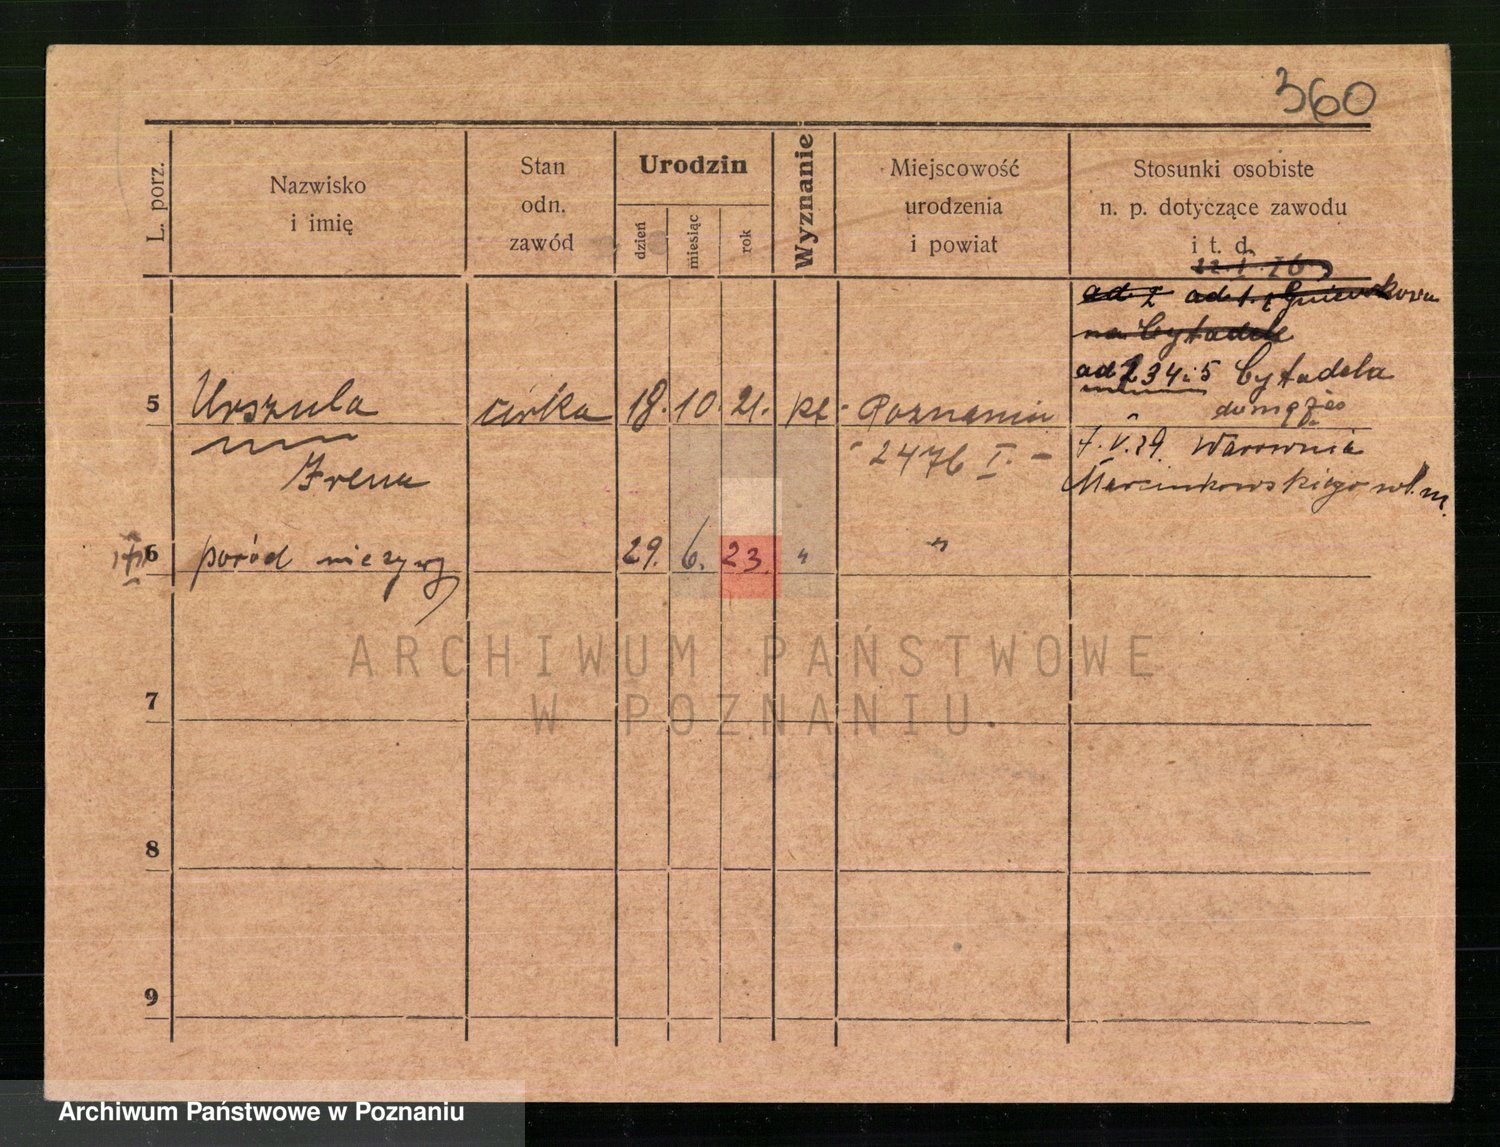 360
L. porz.
Nazwisko
i imię
Stan
odn.
zawód
Urodzin
dzień
miesiąc
rok
Wyznanie
Miejscowość
urodzenia
i powiat
Stosunki osobiste
n. p. dotyczące zawodu
i t. d.
na Cytadele
ad 2 3 4 i 5 Cytadela
5 Urszula córka 18. 10. 21. kt. Poznaniu
Irena
- 2476 I. -
7.V.29. Warownia
Marcinkowskiego
6 poród nieżywy 29. 6. 23. " "
7
8
9
ARCHIWUM PAŃSTWOWE
W POZNANIU.
Archiwum Państwowe w Poznaniu